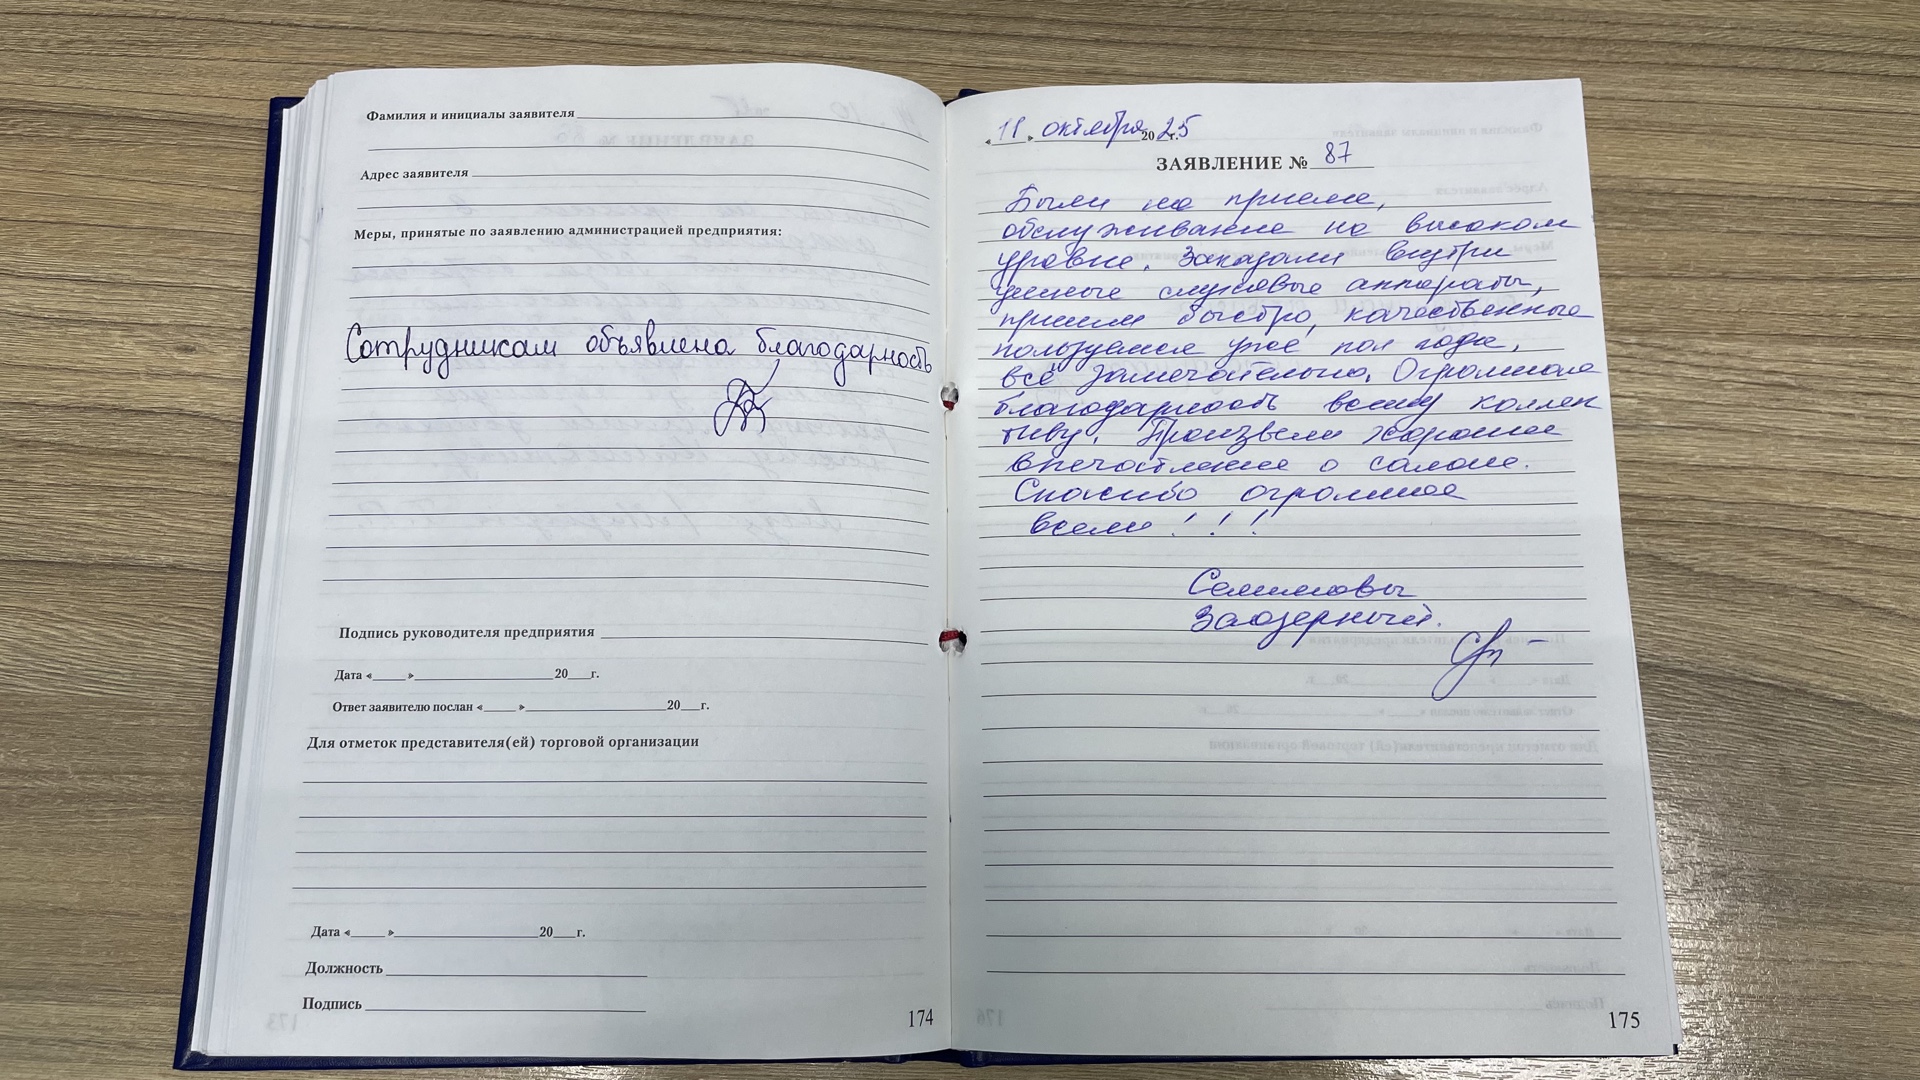 Фамилия и инициалы заявителя
Адрес заявителя
Меры, принятые по заявлению администрацией предприятия:
Сотрудникам объявлена благодарность
Подпись руководителя предприятия
Дата «___» ___ 20__г.
Ответ заявителю послан «___» ___ 20__г.
Для отметок представителя(ей) торговой организации
Дата «___» ___ 20__г.
Должность
Подпись
174
«11» октября 2025г.
ЗАЯВЛЕНИЕ № 87
Были на приеме,
обслуживание на высоком
уровне. Заказали внутри
ушные слуховые аппараты,
пришли быстро, качественные
пользуемся уже пол года,
всё замечательно. Огромная
благодарность всему коллек
тиву. Произвели хорошее
впечатление о салоне.
Спасибо огромное
всем!!!
Заозерный.
175